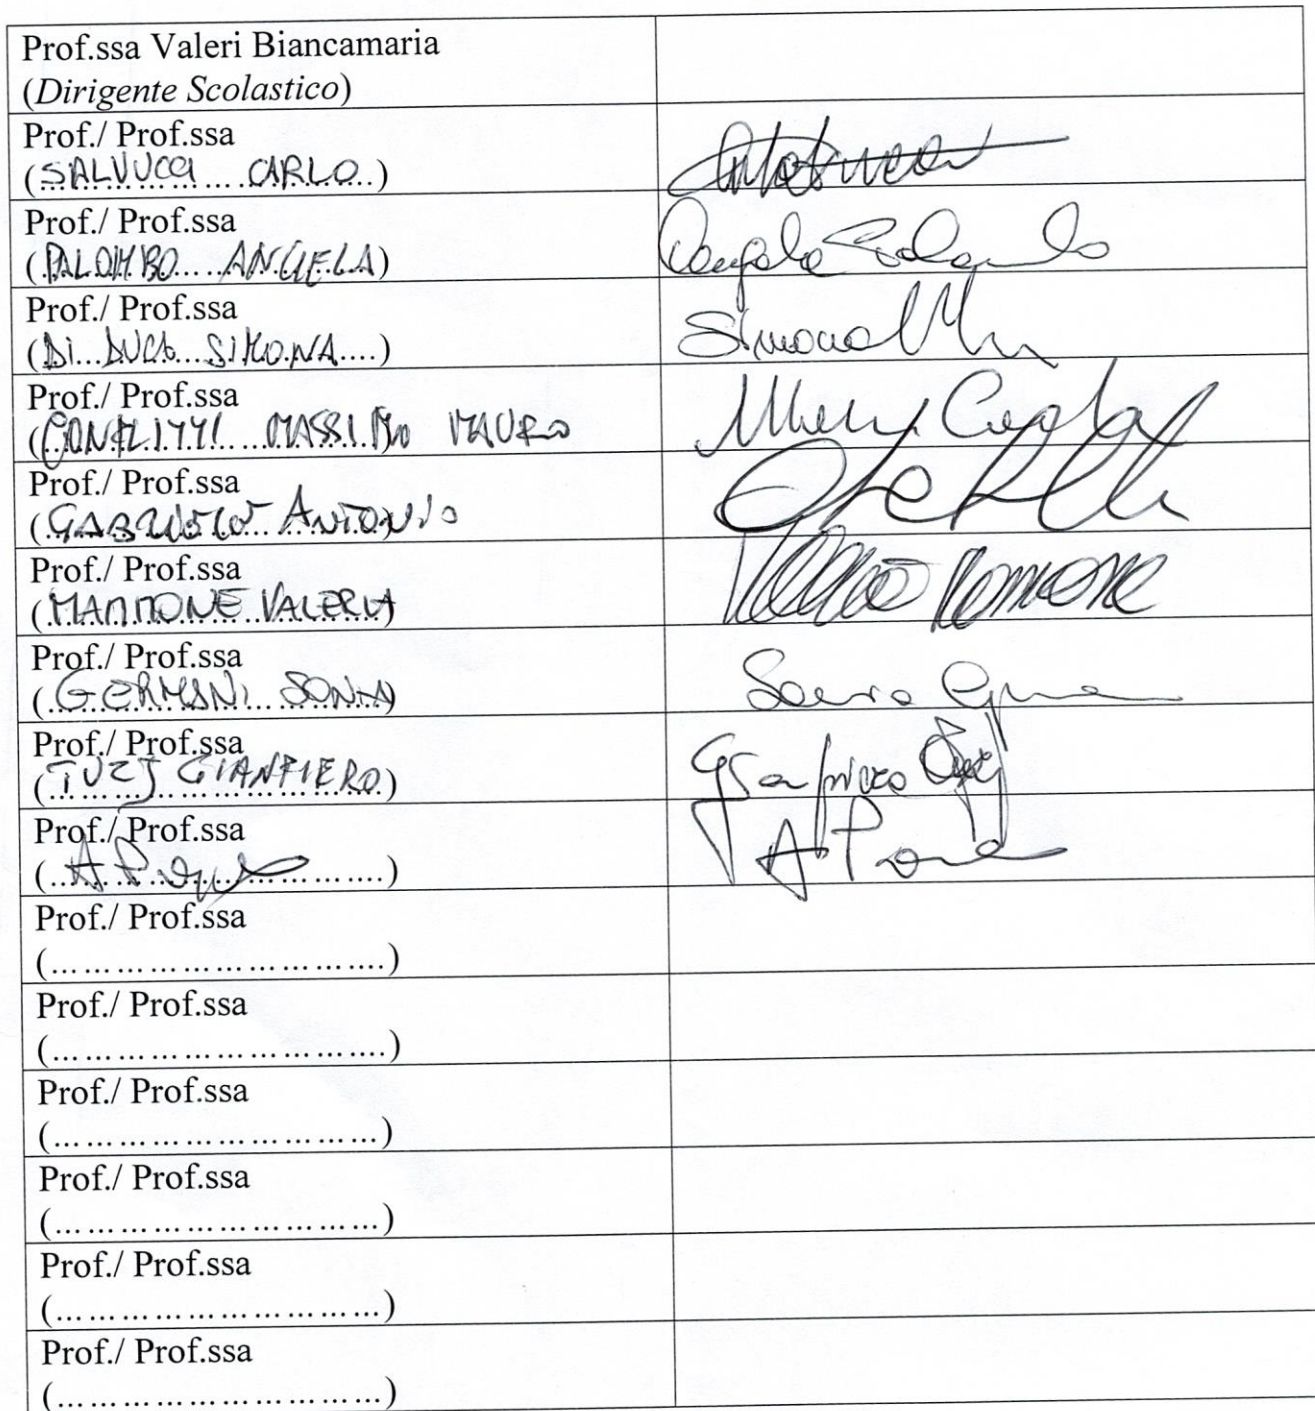 Prof.ssa Valeri Biancamaria
(Dirigente Scolastico)
Prof./ Prof.ssa
(SALVUCCI CARLO)
Prof./ Prof.ssa
(PALOMBO ANGELA)
Angela Palombo
Prof./ Prof.ssa
(DI DUCA SIMONA)
Simona
Prof./ Prof.ssa
(CONFLITTI MASSIMO MAURO
Prof./ Prof.ssa
(GABRIELE ANTONIO
Prof./ Prof.ssa
(MAMMONE VALERIA
Prof./ Prof.ssa
(GERMANI SONIA)
Sonia
Prof./ Prof.ssa
(TUZJ GIANPIERO)
Gianpiero
Prof./ Prof.ssa
Prof./ Prof.ssa
(……………………….…)
Prof./ Prof.ssa
(……………………….…)
Prof./ Prof.ssa
(…………………………)
Prof./ Prof.ssa
(…………………………)
Prof./ Prof.ssa
(…………………………)
Prof./ Prof.ssa
(…………………………)